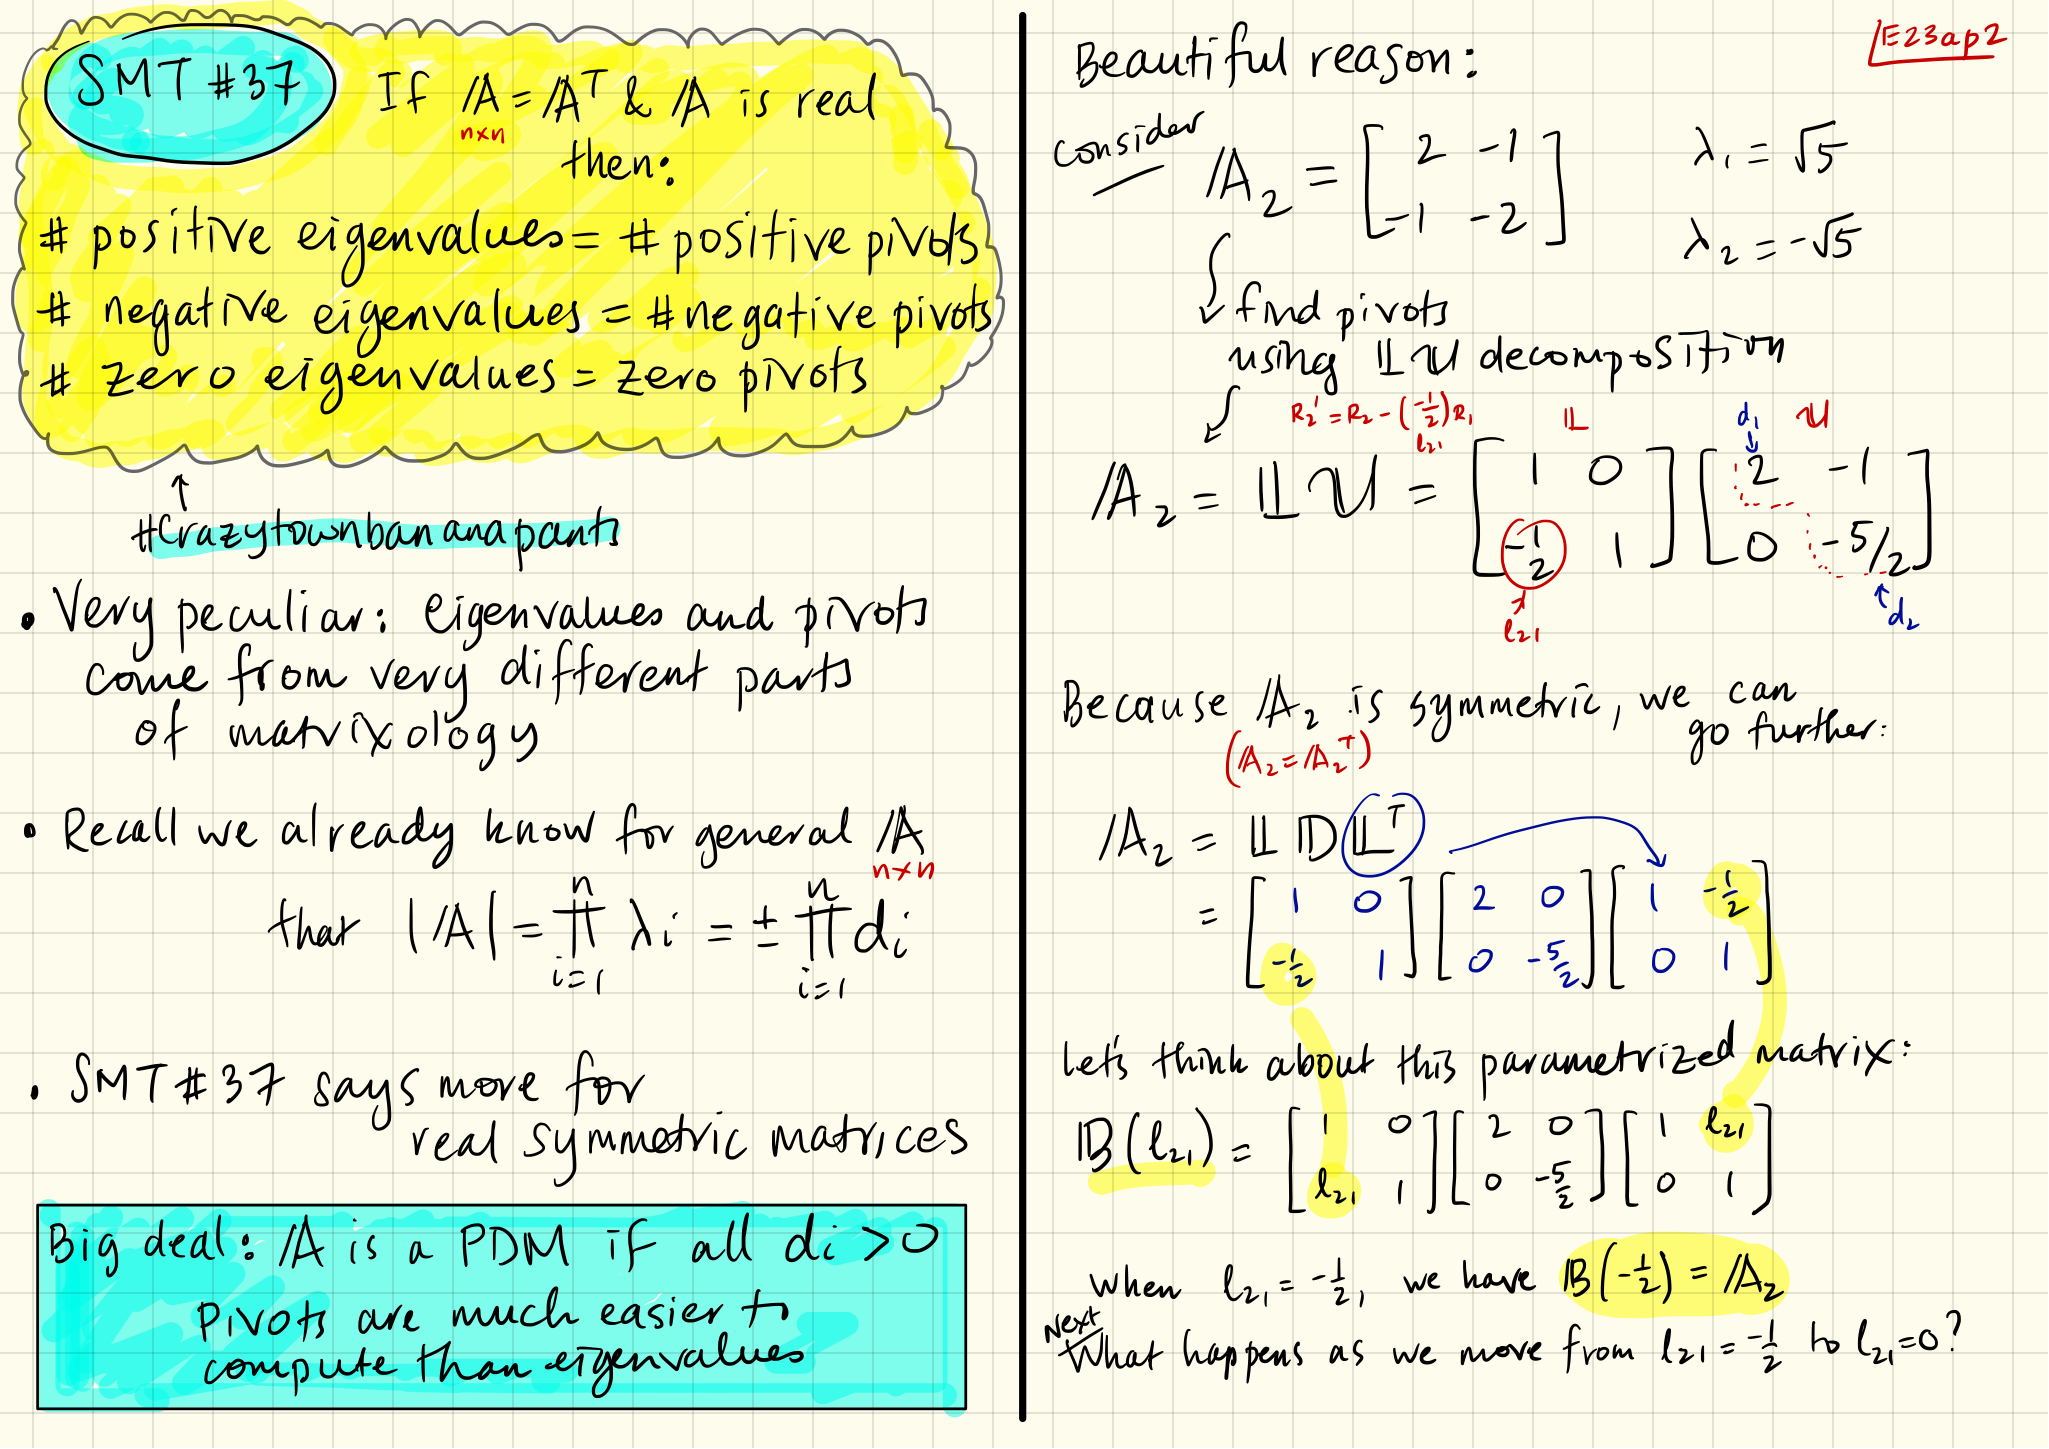 SMT #37
If 𝔸 = 𝔸ᵀ & 𝔸 is real
n×n
then:
# positive eigenvalues = # positive pivots
# negative eigenvalues = # negative pivots
# zero eigenvalues = zero pivots
↑
#Crazytownbananapants
• Very peculiar: eigenvalues and pivots
come from very different parts
of matrixology
• Recall we already know for general 𝔸
n×n
that |𝔸| = ∏ᵢ₌₁ⁿ λᵢ = ± ∏ᵢ₌₁ⁿ dᵢ
• SMT #37 says more for
real symmetric matrices
Big deal: 𝔸 is a PDM if all dᵢ > 0
Pivots are much easier to
compute than eigenvalues
E23ap2
Beautiful reason:
Consider
𝔸₂ = [2 -1; -1 -2]
λ₁ = √5
λ₂ = -√5
find pivots
using 𝕃𝕌 decomposition
R₂' = R₂ - (-1/2)R₁
l₂₁
𝕃
d₁
𝕌
𝔸₂ = 𝕃𝕌 = [1 0; -1/2 1] [2 -1; 0 -5/2]
l₂₁
d₂
Because 𝔸₂ is symmetric, we can
go further:
(𝔸₂ = 𝔸₂ᵀ)
𝔸₂ = 𝕃𝔻𝕃ᵀ
= [1 0; -1/2 1] [2 0; 0 -5/2] [1 -1/2; 0 1]
Let's think about this parametrized matrix:
𝔹(l₂₁) = [1 0; l₂₁ 1] [2 0; 0 -5/2] [1 l₂₁; 0 1]
When l₂₁ = -1/2, we have 𝔹(-1/2) = 𝔸₂
Next
What happens as we move from l₂₁ = -1/2 to l₂₁ = 0?